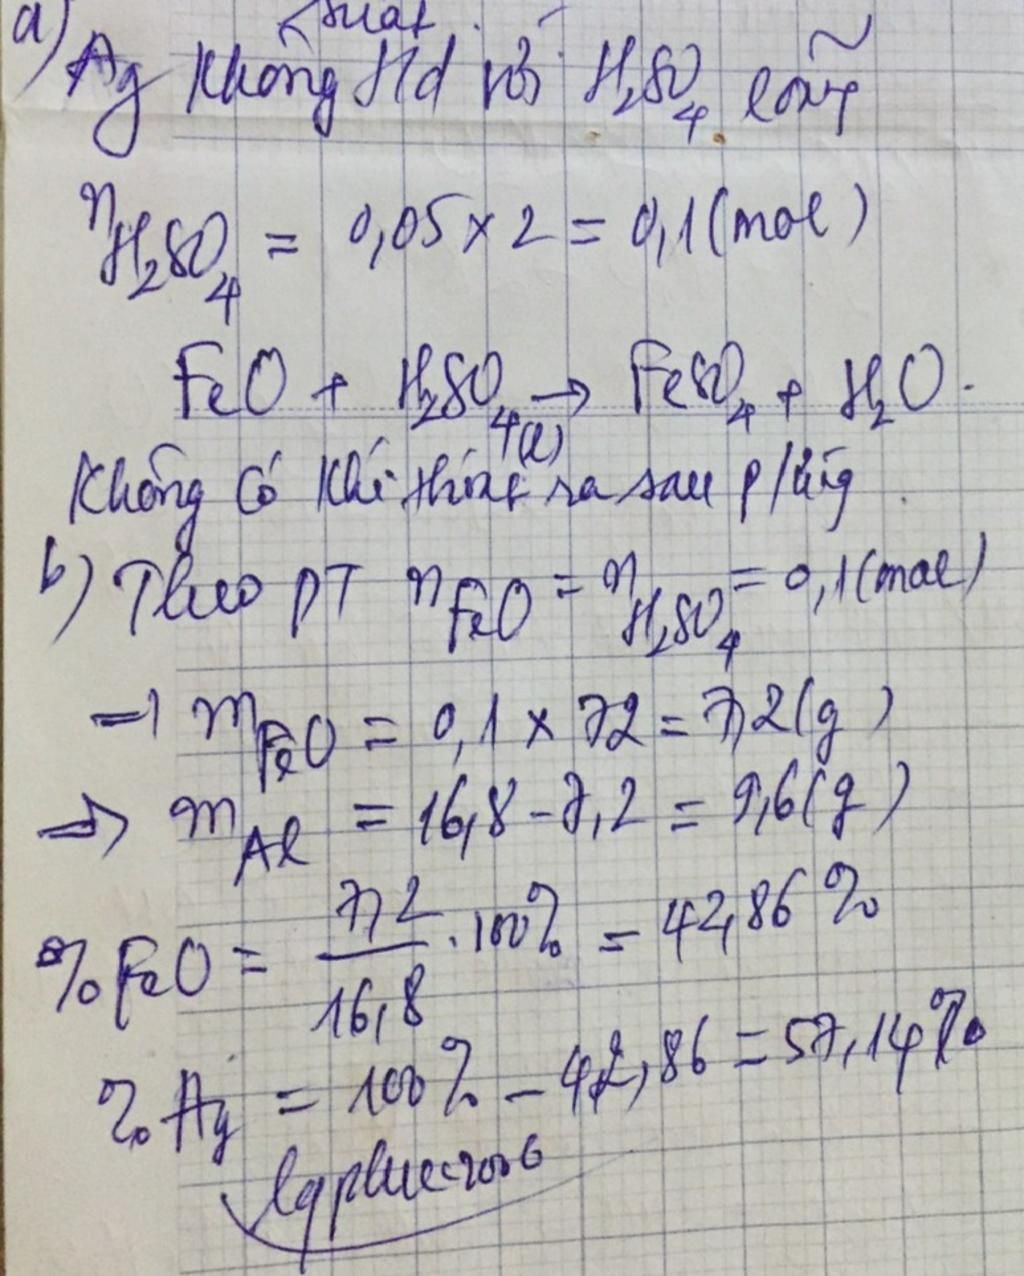 a)
Ag không td với H₂SO₄ loãng
n H₂SO₄ = 0,05 × 2 = 0,1 (mol)
FeO + H₂SO₄(l) → FeSO₄ + H₂O.
Không có khí thoát ra sau p/ứng.
b) Theo PT n FeO = n H₂SO₄ = 0,1 (mol)
→ m FeO = 0,1 × 72 = 7,2 (g)
=> m Al = 16,8 - 7,2 = 9,6 (g)
% FeO = 7,2 / 16,8 . 100% = 42,86 %
% Ag = 100% - 42,86 = 57,14 %